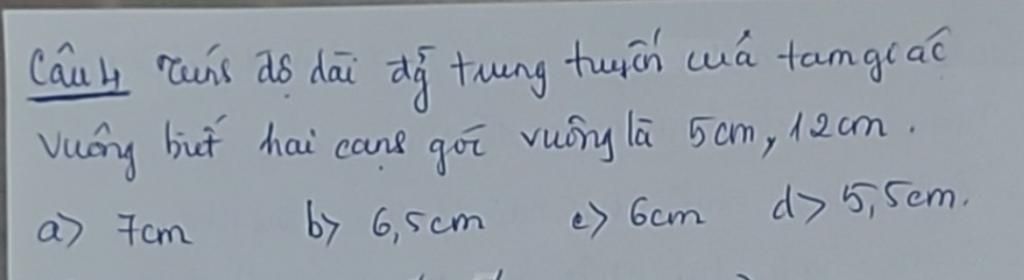 Câu 4 Tính độ dài đg trung tuyến cuả tam giác
vuông biết hai cạnh góc vuông là 5cm, 12cm.
a> 7cm b> 6,5cm c> 6cm d> 5,5cm.